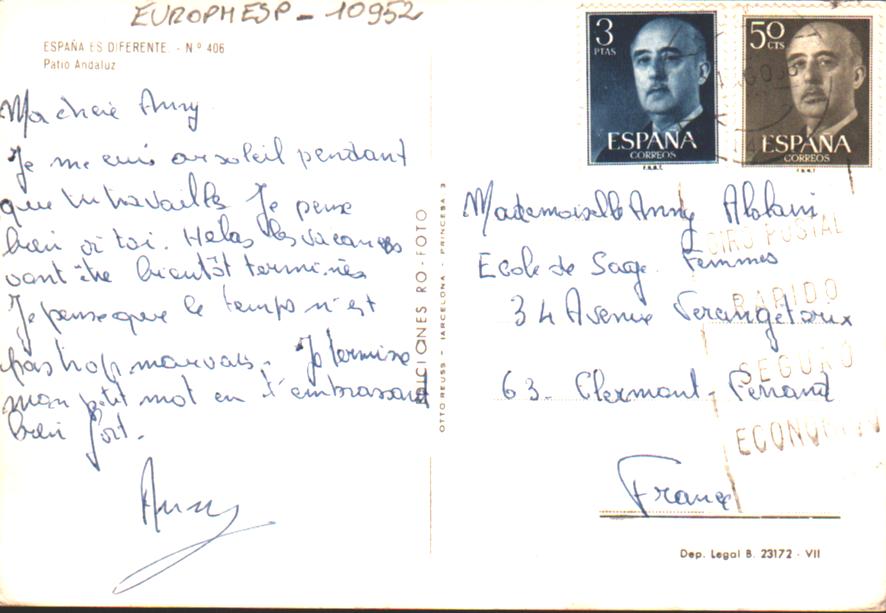 EUROPHESP - 10952
ESPAÑA ES DIFERENTE. - Nº 406
Patio Andaluz
Ma cherie Anny
Je me cuis au soleil pendant
que tu travailles Je pense
bien à toi. Helas les vacances
vont être bientôt terminées
Je pense que le temps n'est
pas trop mauvais. Je termine
mon petit mot en t'embrassant
bien fort.
Anny
EDICIONES RO-FOTO
OTTO REUSS - BARCELONA - PRINCESA 3
3
PTAS
ESPAÑA
CORREOS
F.N.M.T.
50
CTS
ESPAÑA
CORREOS
F.N.M.T.
GIRO POSTAL
RAPIDO
SEGURO
ECONOMICO
Mademoiselle Anny
Ecole de Sage. Femmes
34 Avenue Vercingetorix
63. Clermont-Ferrand
France
Dep. Legal B. 23172 - VII